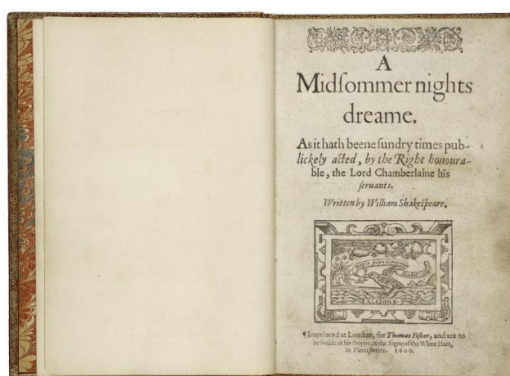 A
Midſommer nights
dreame.
As it hath beene ſundry times pub-
lickely acted, by the Right honoura-
ble, the Lord Chamberlaine his
ſeruants.
Written by William Shakeſpeare.
¶ Imprinted at London, for Thomas Fiſher, and are to
be ſoulde at his ſhoppe, at the Signe of the White Hart,
in Fleeteſtreete. 1600.